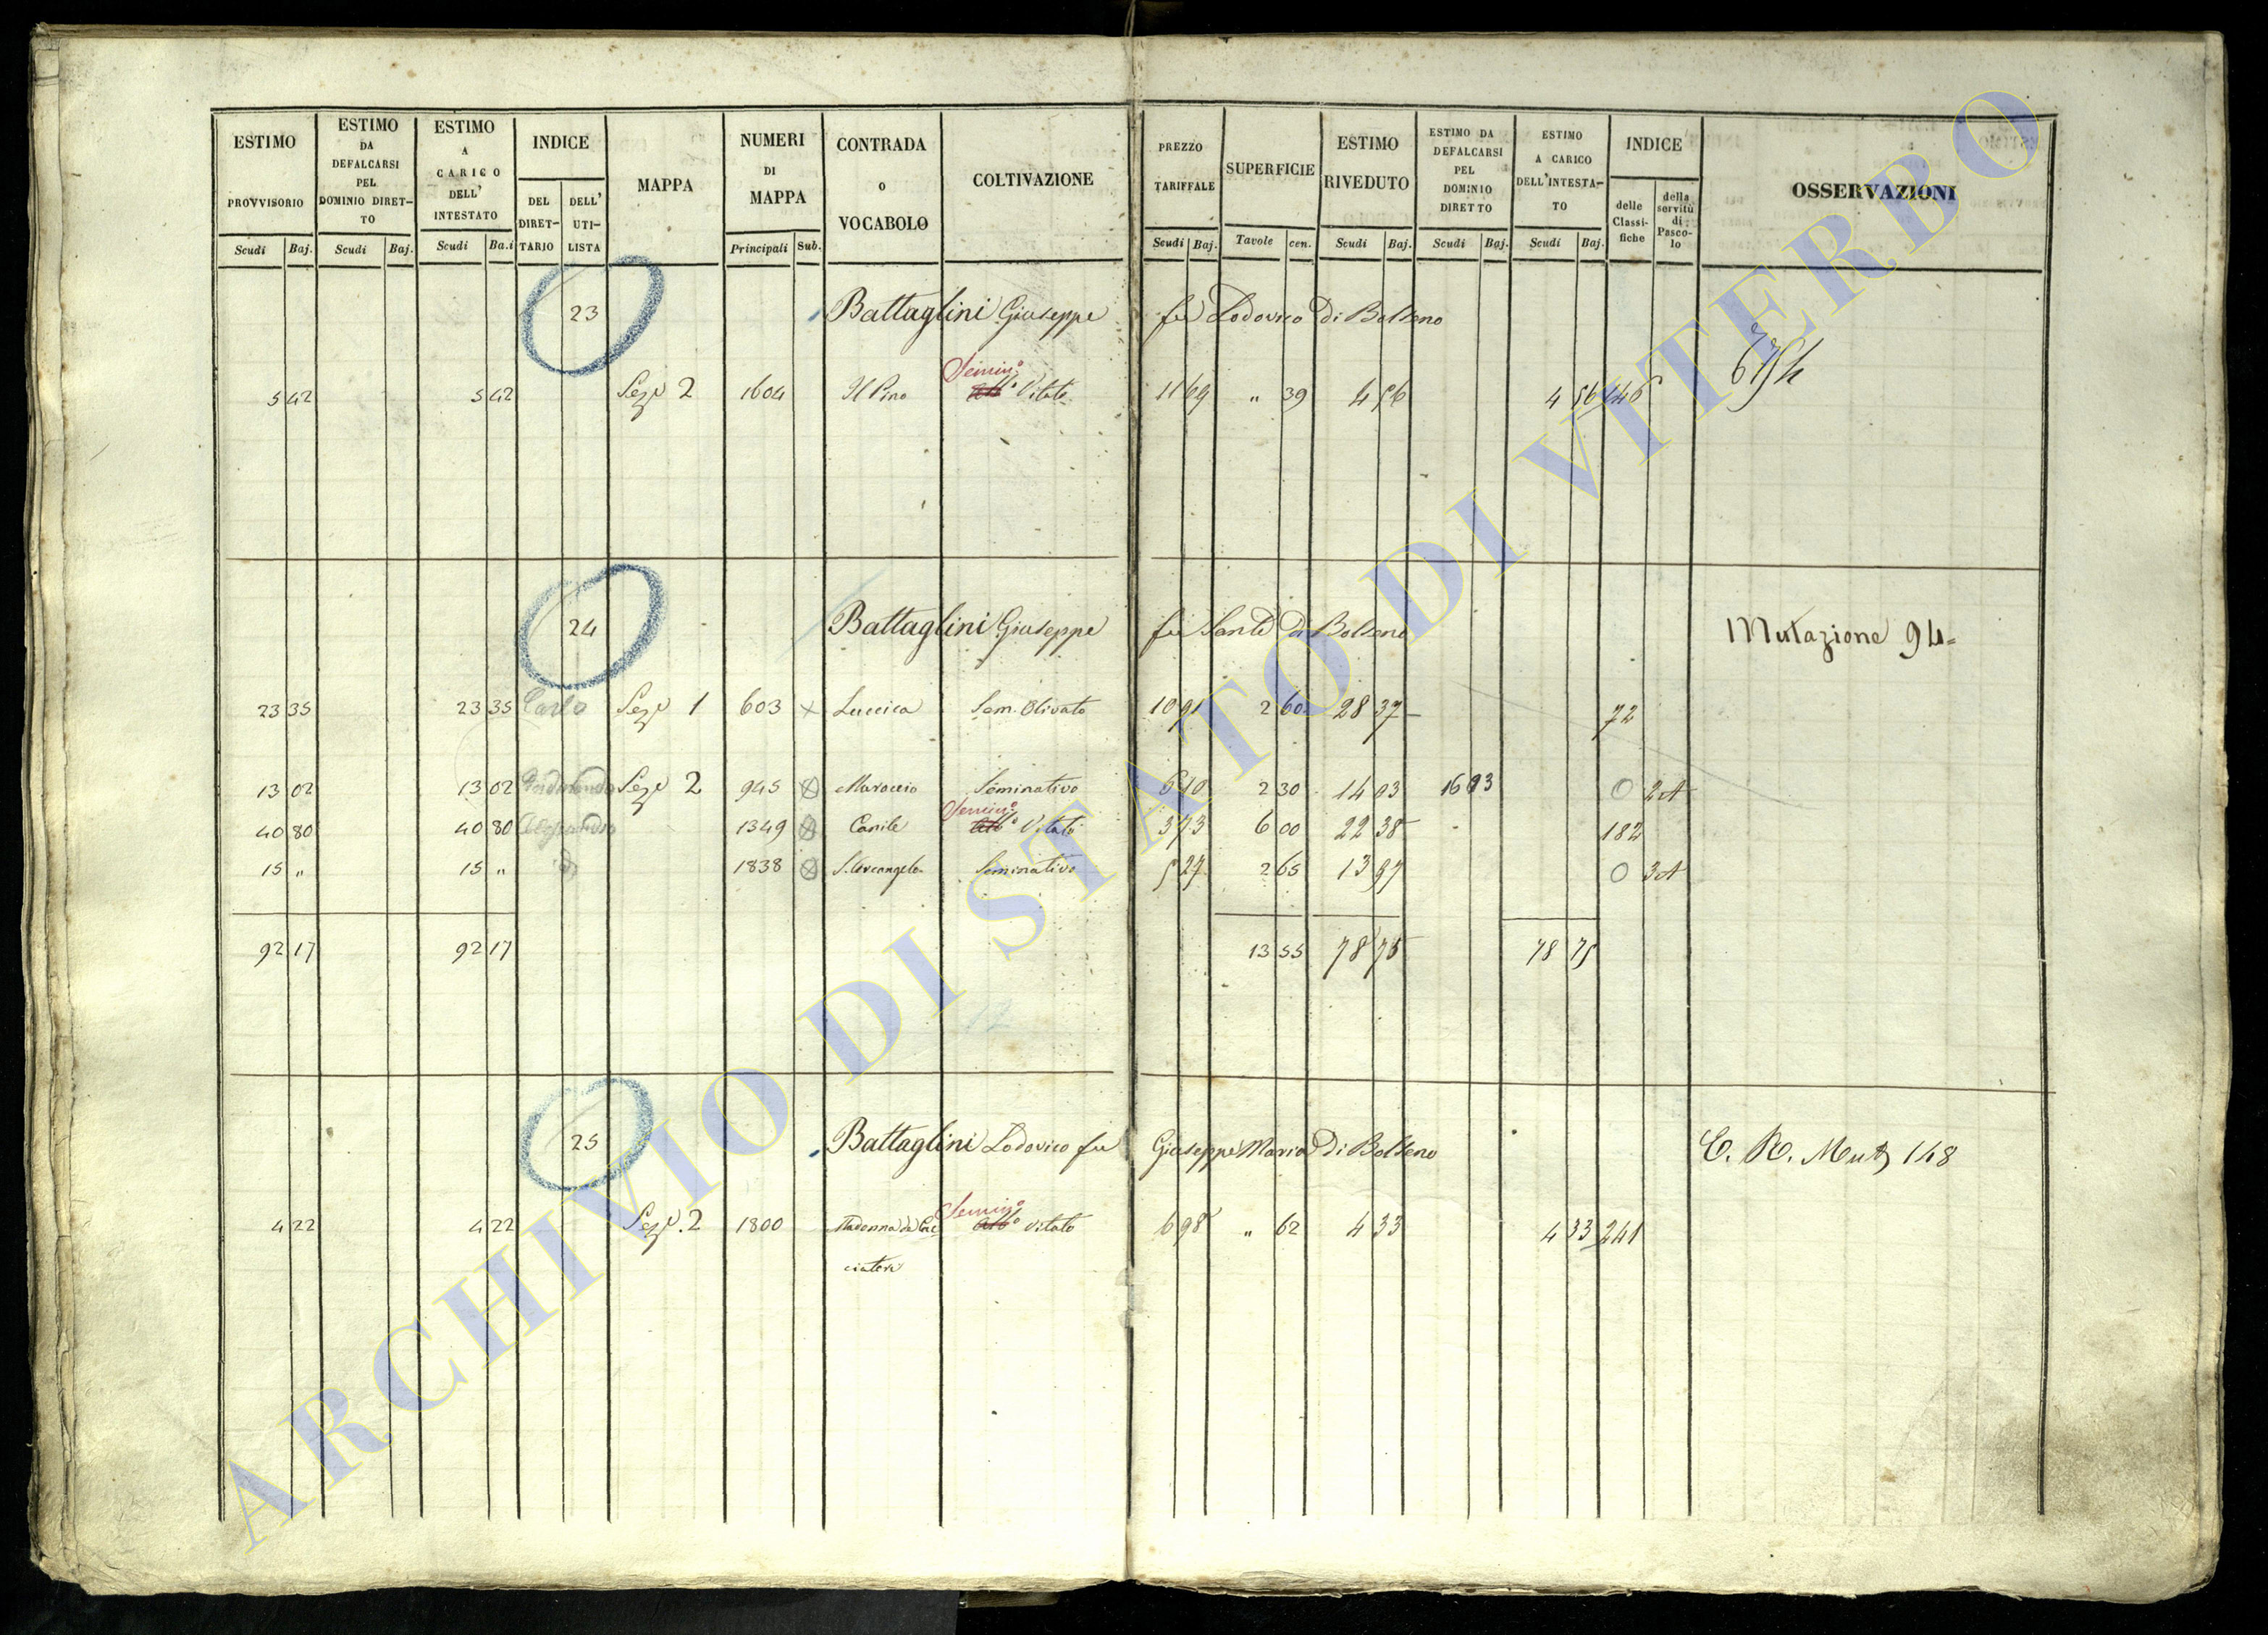 ESTIMO PROVVISORIO Scudi Baj.
ESTIMO DA DEFALCARSI PEL DOMINIO DIRET-TO Scudi Baj.
ESTIMO A CARICO DELL' INTESTATO Scudi Ba.i
INDICE DEL DIRET-TARIO DELL' UTI-LISTA
MAPPA
NUMERI DI MAPPA Principali Sub.
CONTRADA O VOCABOLO
COLTIVAZIONE
PREZZO TARIFFALE Scudi Baj.
SUPERFICIE Tavole cen.
ESTIMO RIVEDUTO Scudi Baj.
ESTIMO DA DEFALCARSI PEL DOMINIO DIRETTO Scudi Baj.
ESTIMO A CARICO DELL'INTESTA-TO Scudi Baj.
INDICE delle Classi-fiche della servitù di Pasco-lo
OSSERVAZIONI
23 Battaglini Giuseppe fu Lodovico di Bolseno
5 42 5 42 Sez.e 2 1604 Il Pino Semin.o Vitato 11 69 " 39 4 56 4 56 146
24 Battaglini Giuseppe fu Sante di Bolseno Mutazione 94=
23 35 23 35 Carlo Sez.e 1 603 x Luccica Sem. Olivato 10 91 2 60 28 37 72
13 02 13 02 Sez.e 2 945 Maroccio Seminativo 6 10 2 30 14 03 0 2A
40 80 40 80 1349 Canile Semin.o Vitato 3 73 6 00 22 38 182
15 " 15 " 1838 S. Arcangelo Seminativo 5 27 2 65 13 97 0 3A
92 17 92 17 13 55 78 75 78 75
25 Battaglini Lodovico fu Giuseppe Maria di Bolseno C. R. Mut 148
4 22 4 22 Sez.e 2 1800 Madonna de Cac
ciatori Semin.o Vitato 6 98 " 62 4 33 4 33 241
ARCHIVIO DI STATO DI VITERBO